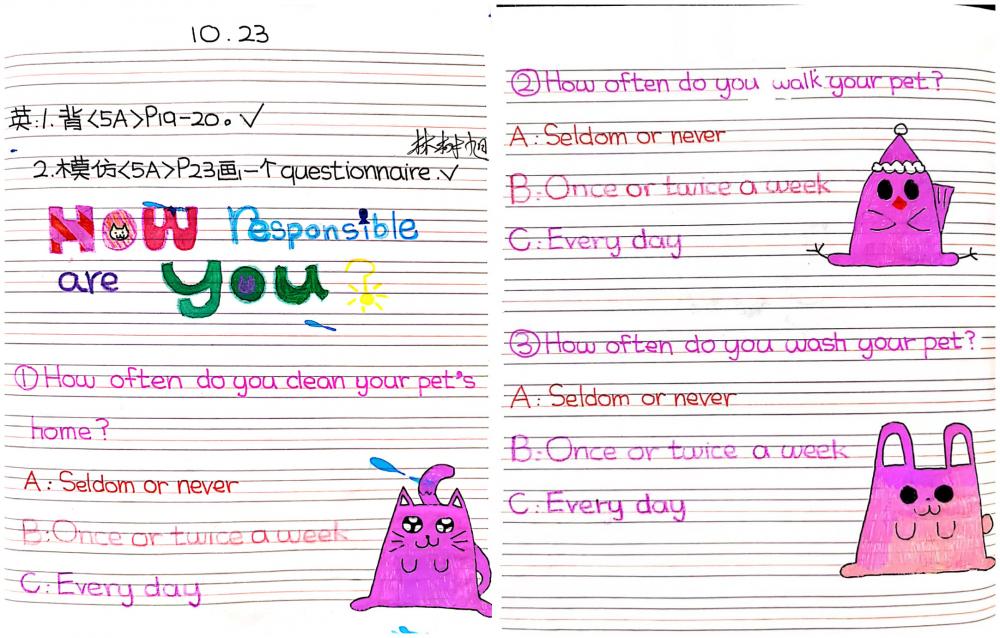 10.23
英:1.背<5A>P19-20。✓
2.模仿<5A>P23画一个questionnaire.✓
How responsible
are you?
①How often do you clean your pet's
home?
A: Seldom or never
B: Once or twice a week
C: Every day
②How often do you walk your pet?
A: Seldom or never
B: Once or twice a week
C: Every day
③How often do you wash your pet?
A: Seldom or never
B: Once or twice a week
C: Every day